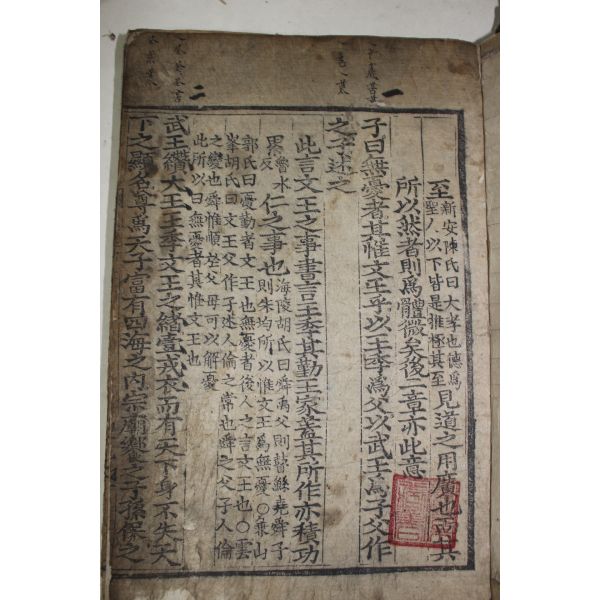 一
二
至
新安陳氏曰大孝也德爲
聖人以下皆是推極其至
見道之用廣也而其
所以然者則爲體微矣後二章亦此意
子曰無憂者其惟文王乎以王季爲父以武王爲子父作
之子述之
此言文王之事書言王季其勤王家蓋其所作亦積功
累
魯水
反
仁之事也
海陵胡氏曰舜禹父則瞽鯀堯舜子
則朱均所以惟文王爲無憂○兼山
郭氏曰憂勤者文王也無憂者後人之言文王也○雲
峯胡氏曰文王父作子述人倫之常也舜之父子人倫
之變也舜惟順於父母可以解憂
此所以曰無憂者其惟文王也
武王纘大王王季文王之緒壹戎衣而有天下身不失天
下之顯名尊爲天子富有四海之內宗廟饗之子孫保之